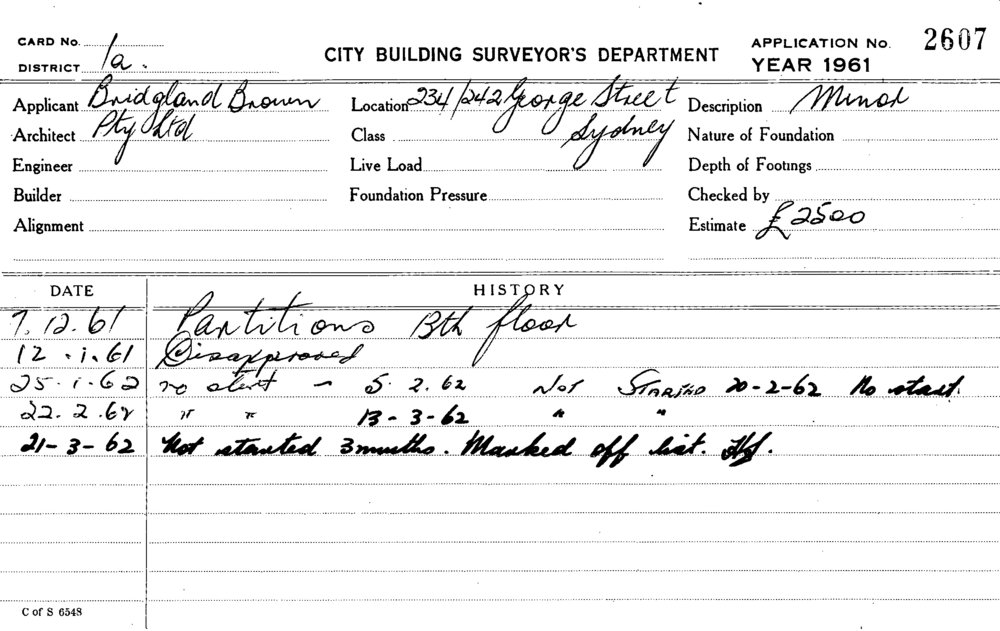 CARD No.
DISTRICT 1a.
CITY BUILDING SURVEYOR'S DEPARTMENT
APPLICATION No. 2607
YEAR 1961
Applicant Bridgland Brown Location 234/242 George Street Description Minor
Architect Pty Ltd Class Sydney Nature of Foundation
Engineer Live Load Depth of Footings
Builder Foundation Pressure Checked by
Alignment Estimate £2500
DATE HISTORY
7.12.61 Partitions 13th floor
12.1.61 Disapproved
25.1.62 no start - 5.2.62 Not Started 20-2-62 No start.
22.2.62 " " 13-3-62 " "
21-3-62 Not started 3 months. Marked off list.
C of S 6548